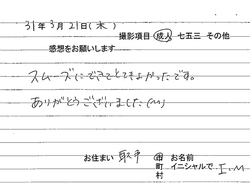 31年3月21日(木)
撮影項目 成人 七五三 その他
感想をお願いします
スムーズにできてとてもよかったです。
ありがとうございました(^^)
お住まい 取手 市町村 お名前イニシャルで I.M